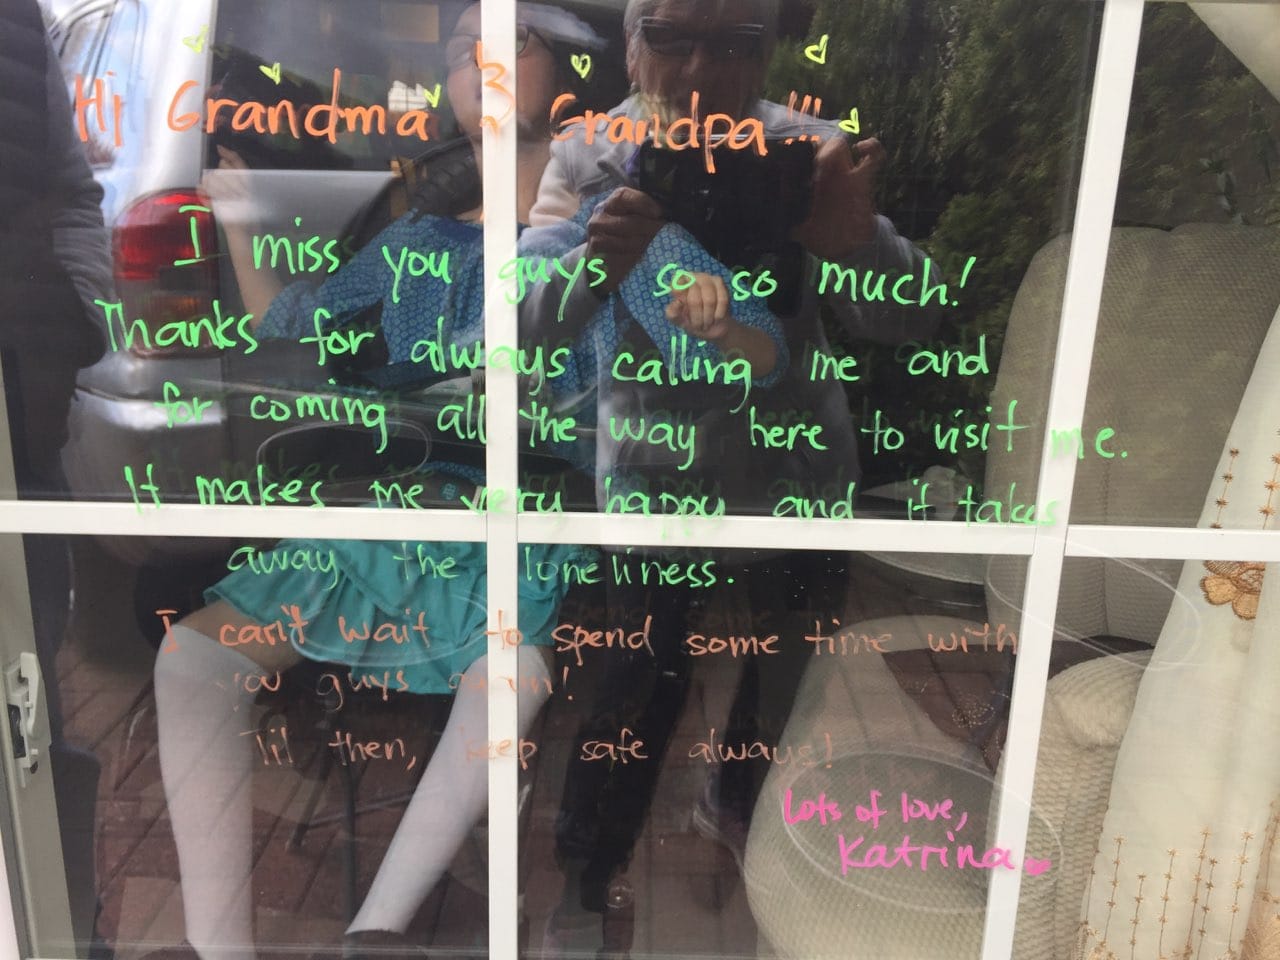 Hi Grandma & Grandpa!!!
I miss you guys so so much!
Thanks for always calling me and
for coming all the way here to visit me.
It makes me very happy and it takes
away the loneliness.
I can't wait to spend some time with
you guys again!
Til then, keep safe always!
Lots of love,
Katrina